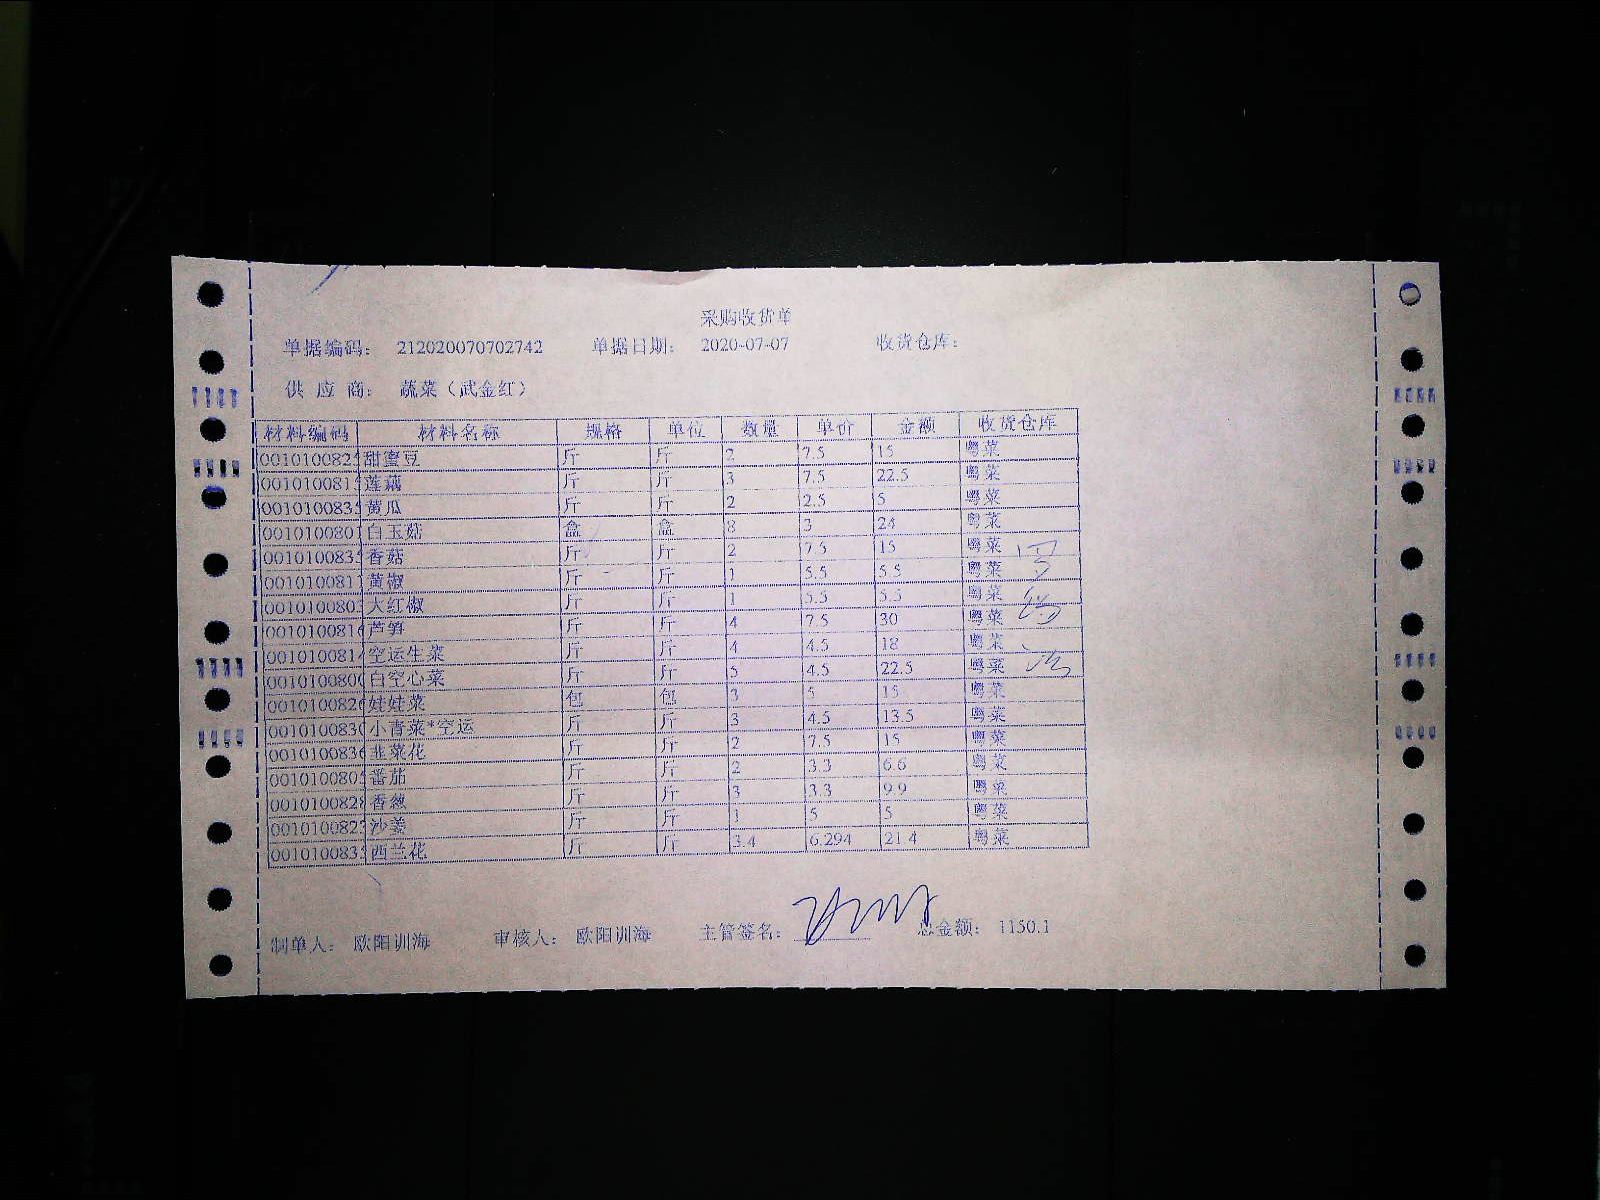 采购收货单
单据编码： 212020070702742 单据日期： 2020-07-07 收货仓库：
供 应 商： 蔬菜（武金红）
材料编码 材料名称 规格 单位 数量 单价 金额 收货仓库
001010082 甜蜜豆 斤 斤 2 7.5 15 粤菜
001010081 莲藕 斤 斤 3 7.5 22.5 粤菜
001010083 黄瓜 斤 斤 2 2.5 5 粤菜
001010080 白玉菇 盒 盒 8 3 24 粤菜
001010083 香菇 斤 斤 2 7.5 15 粤菜
001010081 黄椒 斤 斤 1 5.5 5.5 粤菜
001010080 大红椒 斤 斤 1 5.5 5.5 粤菜
001010081 芦笋 斤 斤 4 7.5 30 粤菜
001010081 空运生菜 斤 斤 4 4.5 18 粤菜
001010080 白空心菜 斤 斤 5 4.5 22.5 粤菜
001010082 娃娃菜 包 包 3 5 15 粤菜
001010083 小青菜*空运 斤 斤 3 4.5 13.5 粤菜
001010083 韭菜花 斤 斤 2 7.5 15 粤菜
001010080 番茄 斤 斤 2 3.3 6.6 粤菜
001010082 香葱 斤 斤 3 3.3 9.9 粤菜
001010082 沙姜 斤 斤 1 5 5 粤菜
001010083 西兰花 斤 斤 3.4 6.294 21.4 粤菜
制单人： 欧阳训海 审核人： 欧阳训海 主管签名： 总金额： 1150.1